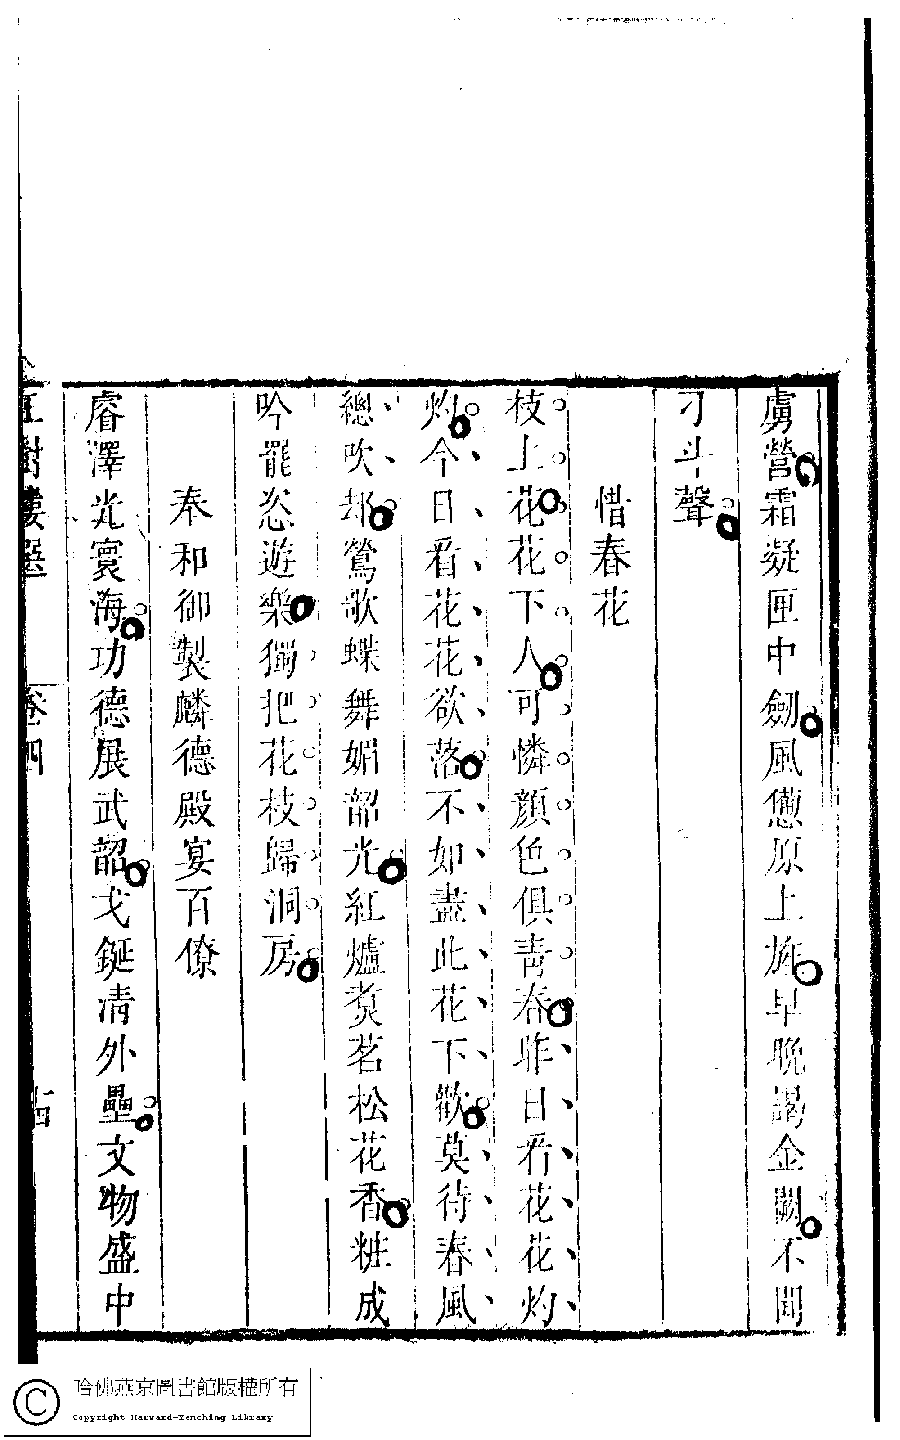 虜營霜凝匣中劒風憊原上旌早晚謁金闕不聞
刁斗聲
惜春花
枝上花花下人可憐顔色俱青春昨日看花花灼
灼今日看花花欲落不如盡此花下歡莫待春風
總吹却鶯歌蝶舞媚韶光紅爐煑茗松花香粧成
吟罷恣遊樂獨把花枝歸洞房
奉和御製麟德殿宴百僚
睿澤光寰海功德展武韶戈鋋清外壘文物盛中
玉樹樓選
卷四
十四
哈佛燕京圖書館版權所有
Copyright Harvard-Yenching Library